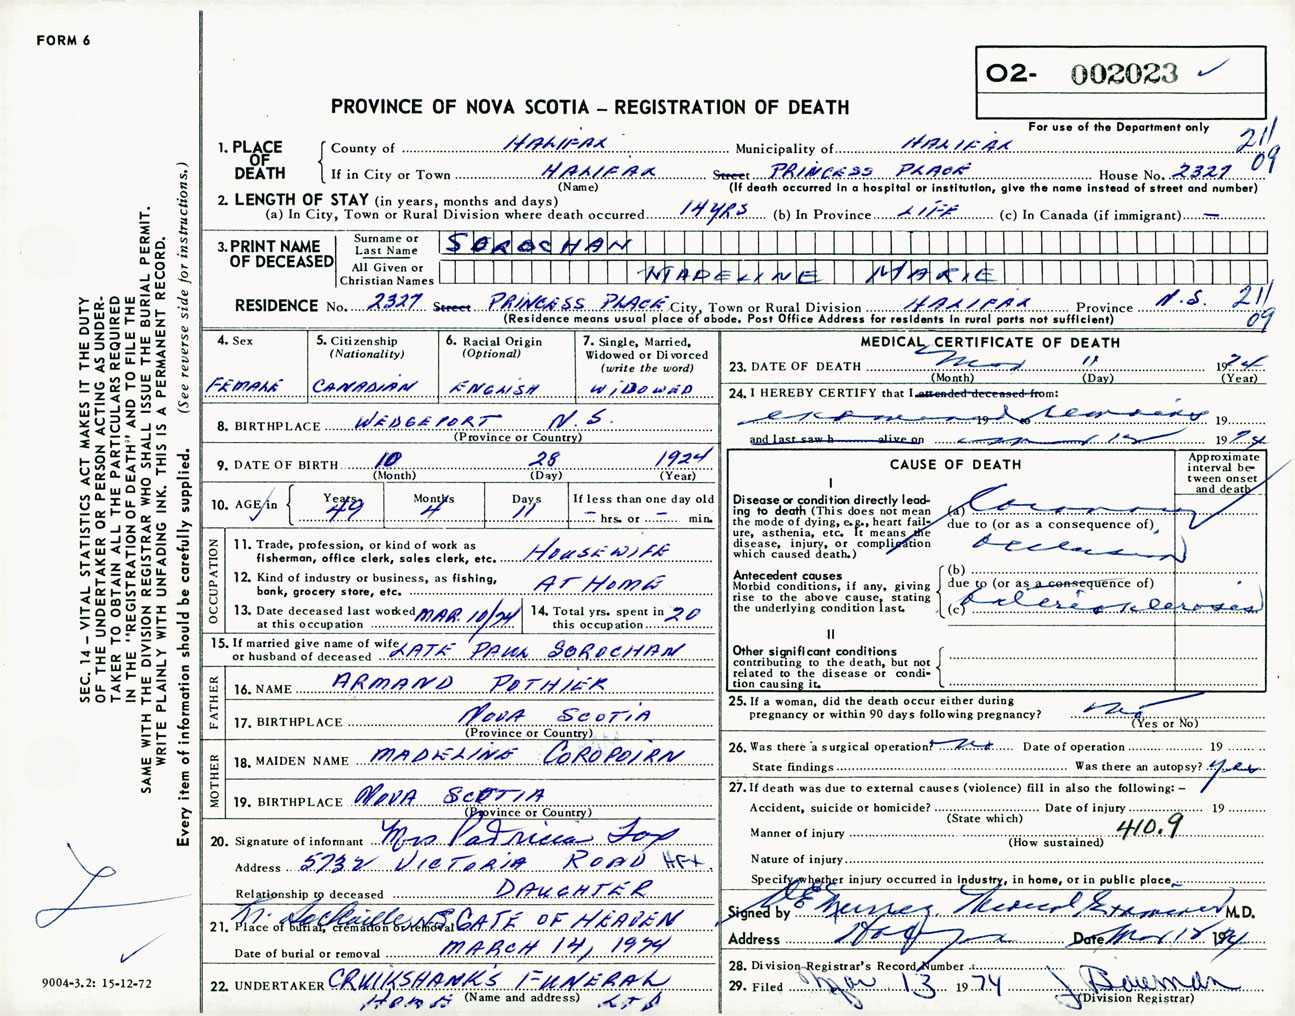 FORM 6
O2- 002023 ✓
PROVINCE OF NOVA SCOTIA – REGISTRATION OF DEATH
For use of the Department only
211
09
1. PLACE OF DEATH
County of HALIFAX Municipality of HALIFAX
If in City or Town HALIFAX Street PRINCESS PLACE House No. 2327
(Name) (If death occurred in a hospital or institution, give the name instead of street and number)
2. LENGTH OF STAY (in years, months and days)
(a) In City, Town or Rural Division where death occurred 14 YRS (b) In Province LIFE (c) In Canada (if immigrant) –
3. PRINT NAME OF DECEASED
Surname or Last Name SOROCHAN
All Given or Christian Names MADELINE MARIE
RESIDENCE No. 2327 Street PRINCESS PLACE City, Town or Rural Division HALIFAX Province N.S. 211
09
(Residence means usual place of abode. Post Office Address for residents in rural parts not sufficient)
4. Sex
FEMALE
5. Citizenship
(Nationality)
CANADIAN
6. Racial Origin
(Optional)
ENGLISH
7. Single, Married,
Widowed or Divorced
(write the word)
WIDOWED
8. BIRTHPLACE WEDGEPORT N.S.
(Province or Country)
9. DATE OF BIRTH 10 28 1924
(Month) (Day) (Year)
10. AGE in
Years Months Days If less than one day old
49 4 11 – hrs. or – min.
OCCUPATION
11. Trade, profession, or kind of work as
fisherman, office clerk, sales clerk, etc. HOUSEWIFE
12. Kind of industry or business, as fishing,
bank, grocery store, etc. AT HOME
13. Date deceased last worked
at this occupation MAR. 10/74
14. Total yrs. spent in
this occupation 20
15. If married give name of wife
or husband of deceased LATE PAUL SOROCHAN
FATHER
16. NAME ARMAND POTHIER
17. BIRTHPLACE NOVA SCOTIA
(Province or Country)
MOTHER
18. MAIDEN NAME MADELINE COROPOIRN
19. BIRTHPLACE NOVA SCOTIA
(Province or Country)
20. Signature of informant Mrs Patricia Fox
Address 5732 VICTORIA ROAD HFX.
Relationship to deceased DAUGHTER
21. Place of burial, cremation or removal GATE OF HEAVEN
Date of burial or removal MARCH 14, 1974
22. UNDERTAKER CRUIKSHANK'S FUNERAL
HOME LTD
(Name and address)
MEDICAL CERTIFICATE OF DEATH
23. DATE OF DEATH Mar 11 1974
(Month) (Day) (Year)
24. I HEREBY CERTIFY that I attended deceased from:
19 to 19
and last saw h alive on 12 1974
CAUSE OF DEATH
Approximate
interval be-
tween onset
and death
I
Disease or condition directly lead-
ing to death (This does not mean
the mode of dying, e.g., heart fail-
ure, asthenia, etc. It means the
disease, injury, or complication
which caused death.)
(a) Coronary
due to (or as a consequence of)
occlusion
Antecedent causes
Morbid conditions, if any, giving
rise to the above cause, stating
the underlying condition last.
(b)
due to (or as a consequence of)
(c) arteriosclerosis
II
Other significant conditions
contributing to the death, but not
related to the disease or condi-
tion causing it.
25. If a woman, did the death occur either during
pregnancy or within 90 days following pregnancy? no
(Yes or No)
26. Was there a surgical operation? no Date of operation 19
State findings Was there an autopsy? yes
27. If death was due to external causes (violence) fill in also the following: –
Accident, suicide or homicide? Date of injury 19
(State which)
Manner of injury 410.9
(How sustained)
Nature of injury
Specify whether injury occurred in Industry, in home, or in public place
Signed by Murray Medical Examiner M.D.
Address Date Mar 12 1974
28. Division Registrar's Record Number
29. Filed Mar 13 1974 J Bowman
(Division Registrar)
SEC. 14 – VITAL STATISTICS ACT MAKES IT THE DUTY
OF THE UNDERTAKER OR PERSON ACTING AS UNDER-
TAKER TO OBTAIN ALL THE PARTICULARS REQUIRED
IN THE "REGISTRATION OF DEATH" AND TO FILE THE
SAME WITH THE DIVISION REGISTRAR WHO SHALL ISSUE THE BURIAL PERMIT.
WRITE PLAINLY WITH UNFADING INK. THIS IS A PERMANENT RECORD.
Every item of information should be carefully supplied. (See reverse side for instructions.)
9004-3.2: 15-12-72